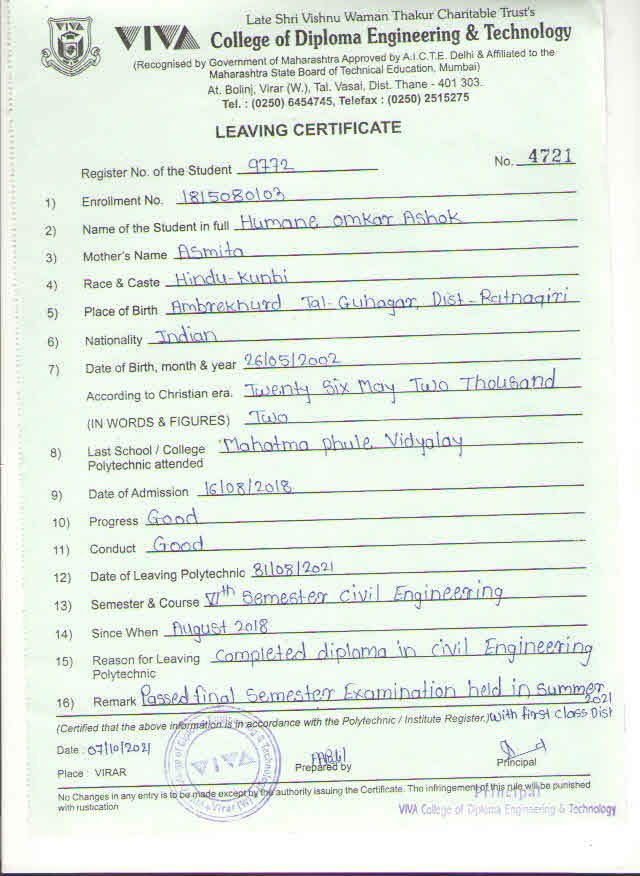 Late Shri Vishnu Waman Thakur Charitable Trust's
VIVA College of Diploma Engineering & Technology
(Recognised by Government of Maharashtra Approved by A.I.C.T.E. Delhi & Affiliated to the
Maharashtra State Board of Technical Education, Mumbai)
At. Bolinj, Virar (W.), Tal. Vasai, Dist. Thane - 401 303.
Tel. : (0250) 6454745, Telefax : (0250) 2515275
LEAVING CERTIFICATE
Register No. of the Student 9772 No. 4721
1) Enrollment No. 1815080103
2) Name of the Student in full Humane omkar Ashok
3) Mother's Name Asmita
4) Race & Caste Hindu-Kunbi
5) Place of Birth Ambrekhurd Tal-Guhagar, Dist-Ratnagiri
6) Nationality Indian
7) Date of Birth, month & year 26/05/2002
According to Christian era. Twenty Six May Two Thousand
(IN WORDS & FIGURES) Two
8) Last School / College Mahatma phule Vidyalay
Polytechnic attended
9) Date of Admission 16/08/2018
10) Progress Good
11) Conduct Good
12) Date of Leaving Polytechnic 31/08/2021
13) Semester & Course VIth Semester Civil Engineering
14) Since When August 2018
15) Reason for Leaving Completed diploma in civil Engineering
Polytechnic
16) Remark Passed final Semester Examination held in summer
2021
(Certified that the above information is in accordance with the Polytechnic / Institute Register.) with first class Dist
Date : 07/10/2021
Place : VIRAR Prepared by Principal
VIVA
Virar (W)
No Changes in any entry is to be made except by the authority issuing the Certificate. The infringement of this rule will be punished
with rustication
Principal
VIVA College of Diploma Engineering & Technology